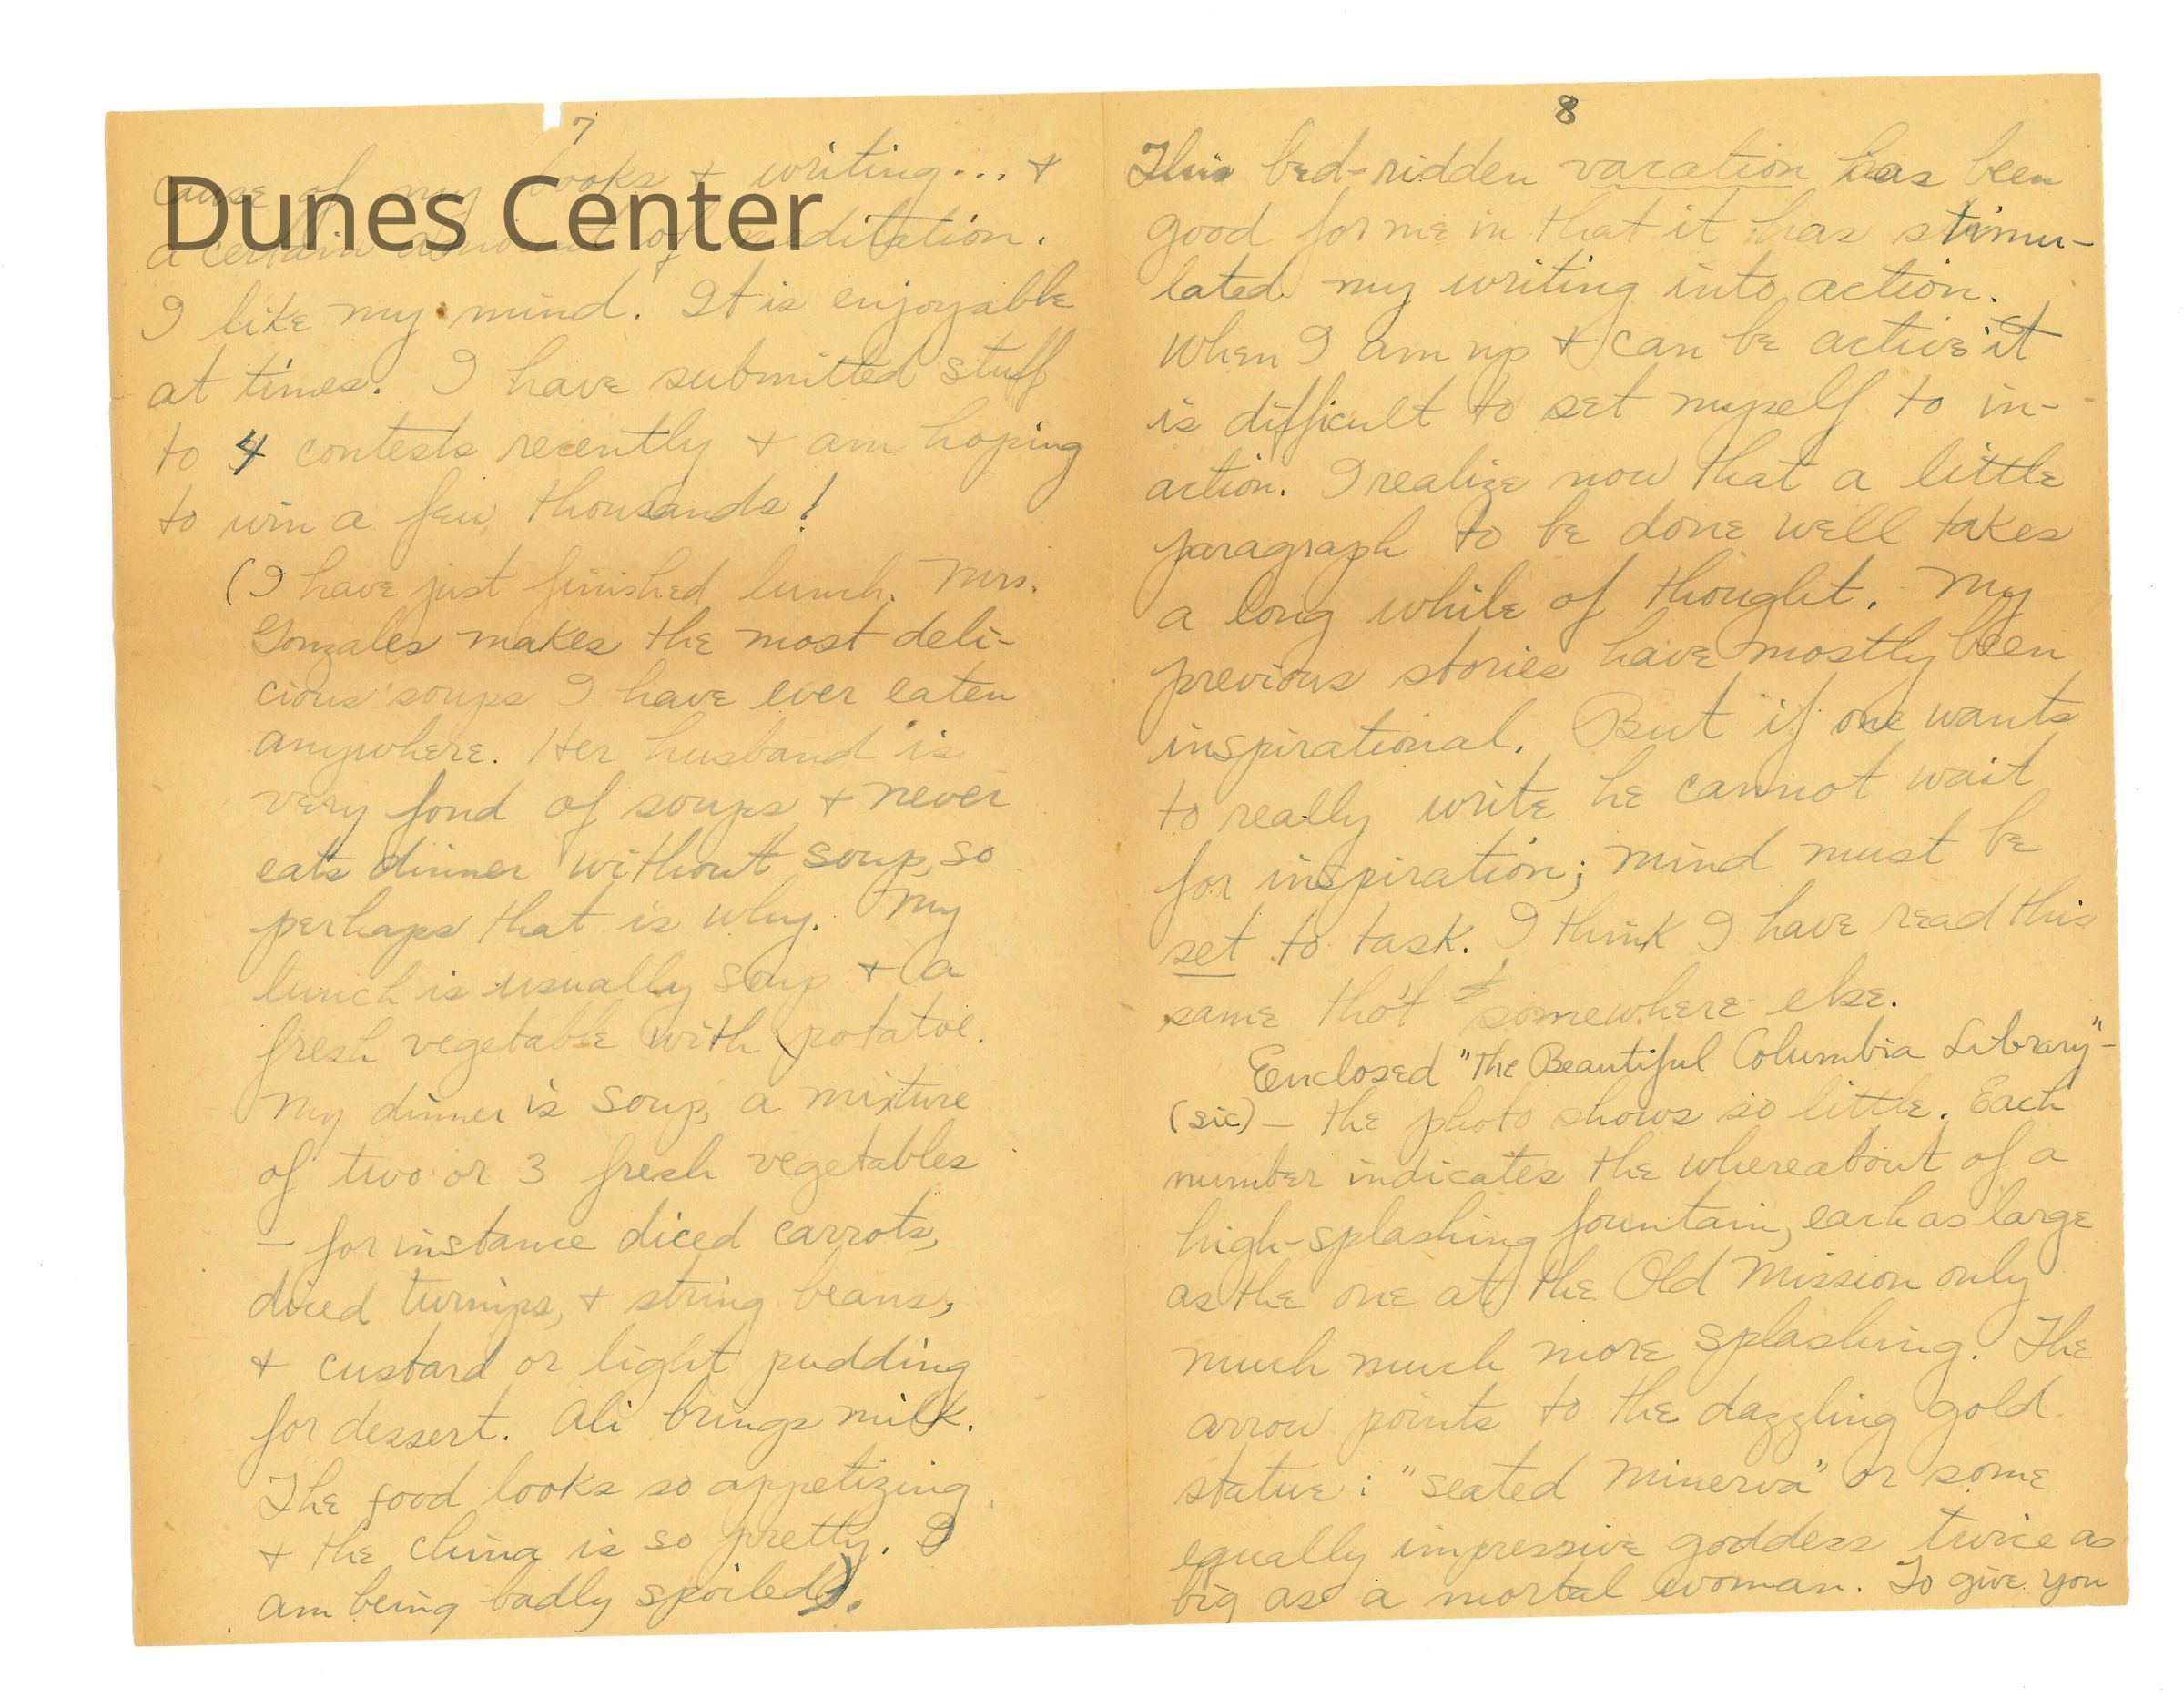 Dunes Center
7
cause of my books & writing... &
a certain amount of meditation.
I like my mind. It is enjoyable
at times. I have submitted stuff
to 4 contests recently & am hoping
to win a few thousands!
(I have just finished lunch. Mrs.
Gonzales makes the most deli-
cious soups I have ever eaten
anywhere. Her husband is
very fond of soups & never
eats dinner without soup, so
perhaps that is why. My
lunch is usually soup & a
fresh vegetable with potatoe.
My dinner is soup, a mixture
of two or 3 fresh vegetables
— for instance diced carrots,
diced turnips, & string beans,
& custard or light pudding
for dessert. Ali brings milk.
The food looks so appetizing
& the china is so pretty. I
am being badly spoiled).
8
This bed-ridden vacation has been
good for me in that it has stimu-
lated my writing into action.
When I am up & can be active it
is difficult to set myself to in-
action. I realize now that a little
paragraph to be done well takes
a long while of thought. My
previous stories have mostly been
inspirational. But if one wants
to really write he cannot wait
for inspiration; mind must be
set to task. I think I have read this
same tho't somewhere else.
Enclosed "The Beautiful Columbia Library"-
(sic) — the photo shows so little. Each
number indicates the whereabout of a
high-splashing fountain, each as large
as the one at the Old Mission only
much much more splashing. The
arrow points to the dazzling gold
statue: "seated Minerva" or some
equally impressive goddess twice as
big as a mortal woman. To give you